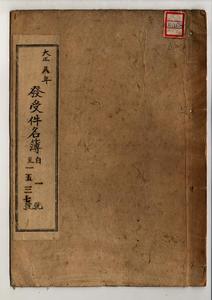 大正五年
發受件名簿
自一號
至一五三七號